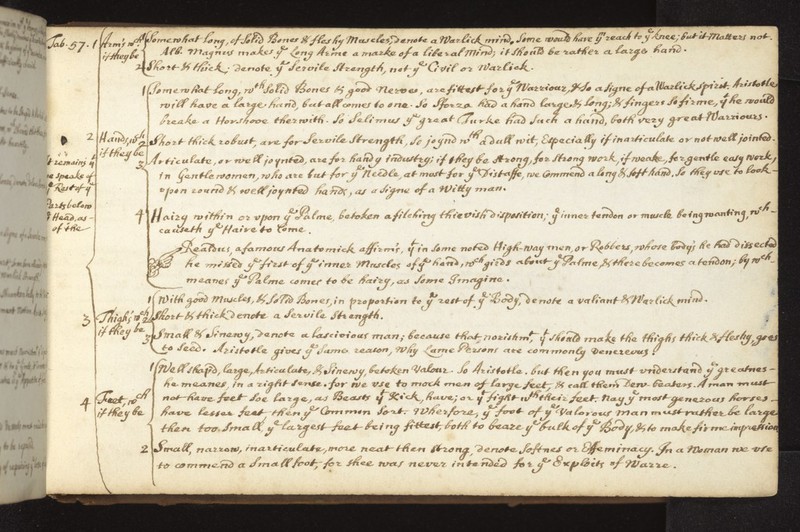 Tab. 57. 1 Arms, wch if they be
1 Somewhat long, of Solid Bones & fleshy Muscles, denote a Warlick mind. Some would have ym reach to ye knee; but it Matters not.
Alb. Magnus makes ye Long Arme a marke of a liberal Mind; it should be rather a large hand.
2 Short & thick; denote ye Servile Strength, not ye Civil or Warlick.
2 Hands, wch if they be
1 Somewhat long, wth Solid Bones & good Nerves, are fittest for ye Warriour, & So a signe of a Warlick spirit. Aristotle
will have a large hand, but all comes to one. So Sforza had a hand large & long; & fingers so firme, yt he would
breake a Horshove therwith. So Selimus ye great Turke had Such a hand, both very great Warriours.
2 Short thick robust, are for Servile Strength, So joynd wth a dull wit, Especially if inarticulate or not well jointed.
3 Articulate, or well joynted, are for handy industry; if they be strong, for strong work, if weake, for gentle easy work,
in Gentlewomen, who are but for ye Needle, at most for ye Distaffe, we commend a long & soft hand, So they use to look-
upon round & well joynted hands, as a signe of a Witty man.
4 Hairy within or upon ye Palme, betoken a filching thievish disposition; ye inner tendon or muscle being wanting, wch-
causeth ye Haire to Come.
Realdus, a famous Anatomick affirms, yt in some noted High-way men, or Robbers, whose bodys he had dissected
he missed ye first of ye inner Muscles of ye hand, wch girds about ye Palme, & there becomes a tendon; by wch-
meanes ye Palme comes to be hairy, as Some Imagine.
It remains yt
we speake of
ye Rest of ye
Parts below
ye head, as-
of the
3 Thighs, wch if they be
1 With good Muscles, & Solid Bones, in proportion to ye rest of ye Body, denote a valiant & Warlick mind.
2 Short & thick denote a Servile Strength.
3 Small & Sinewy, denote a lascivious man; because that norishmt yt should make the thighs thick & fleshy, goes
to Seed. Aristotle gives ye Same reason, why Lame Persons are commonly Venereous.
4 Feet, wch if they be
1 Well shap'd, large, Articulate, & Sinewy, betoken Valour. So Aristotle. but then you must understand ye greatnes-
he meanes, in a right sense. for we use to mock men of large feet, & call them Dew-beaters. A man must
not have feet soe large, as Beasts yt Kick, have; or yt fight wth their feet. Nay ye most generous horses-
have lesser feet then ye Common Sort. Wherfore, ye foot of ye Valorous man must rather be large
then too Small, ye largest feet being fittest, both to beare ye bulk of ye Body, & to make firme impression
2 Small, narrow, inarticulate, more neat then strong, denote Softnes or Effeminacy. In a Woman we use
to commend a Small foot, for shee was never intended for ye Exploits of Warre.